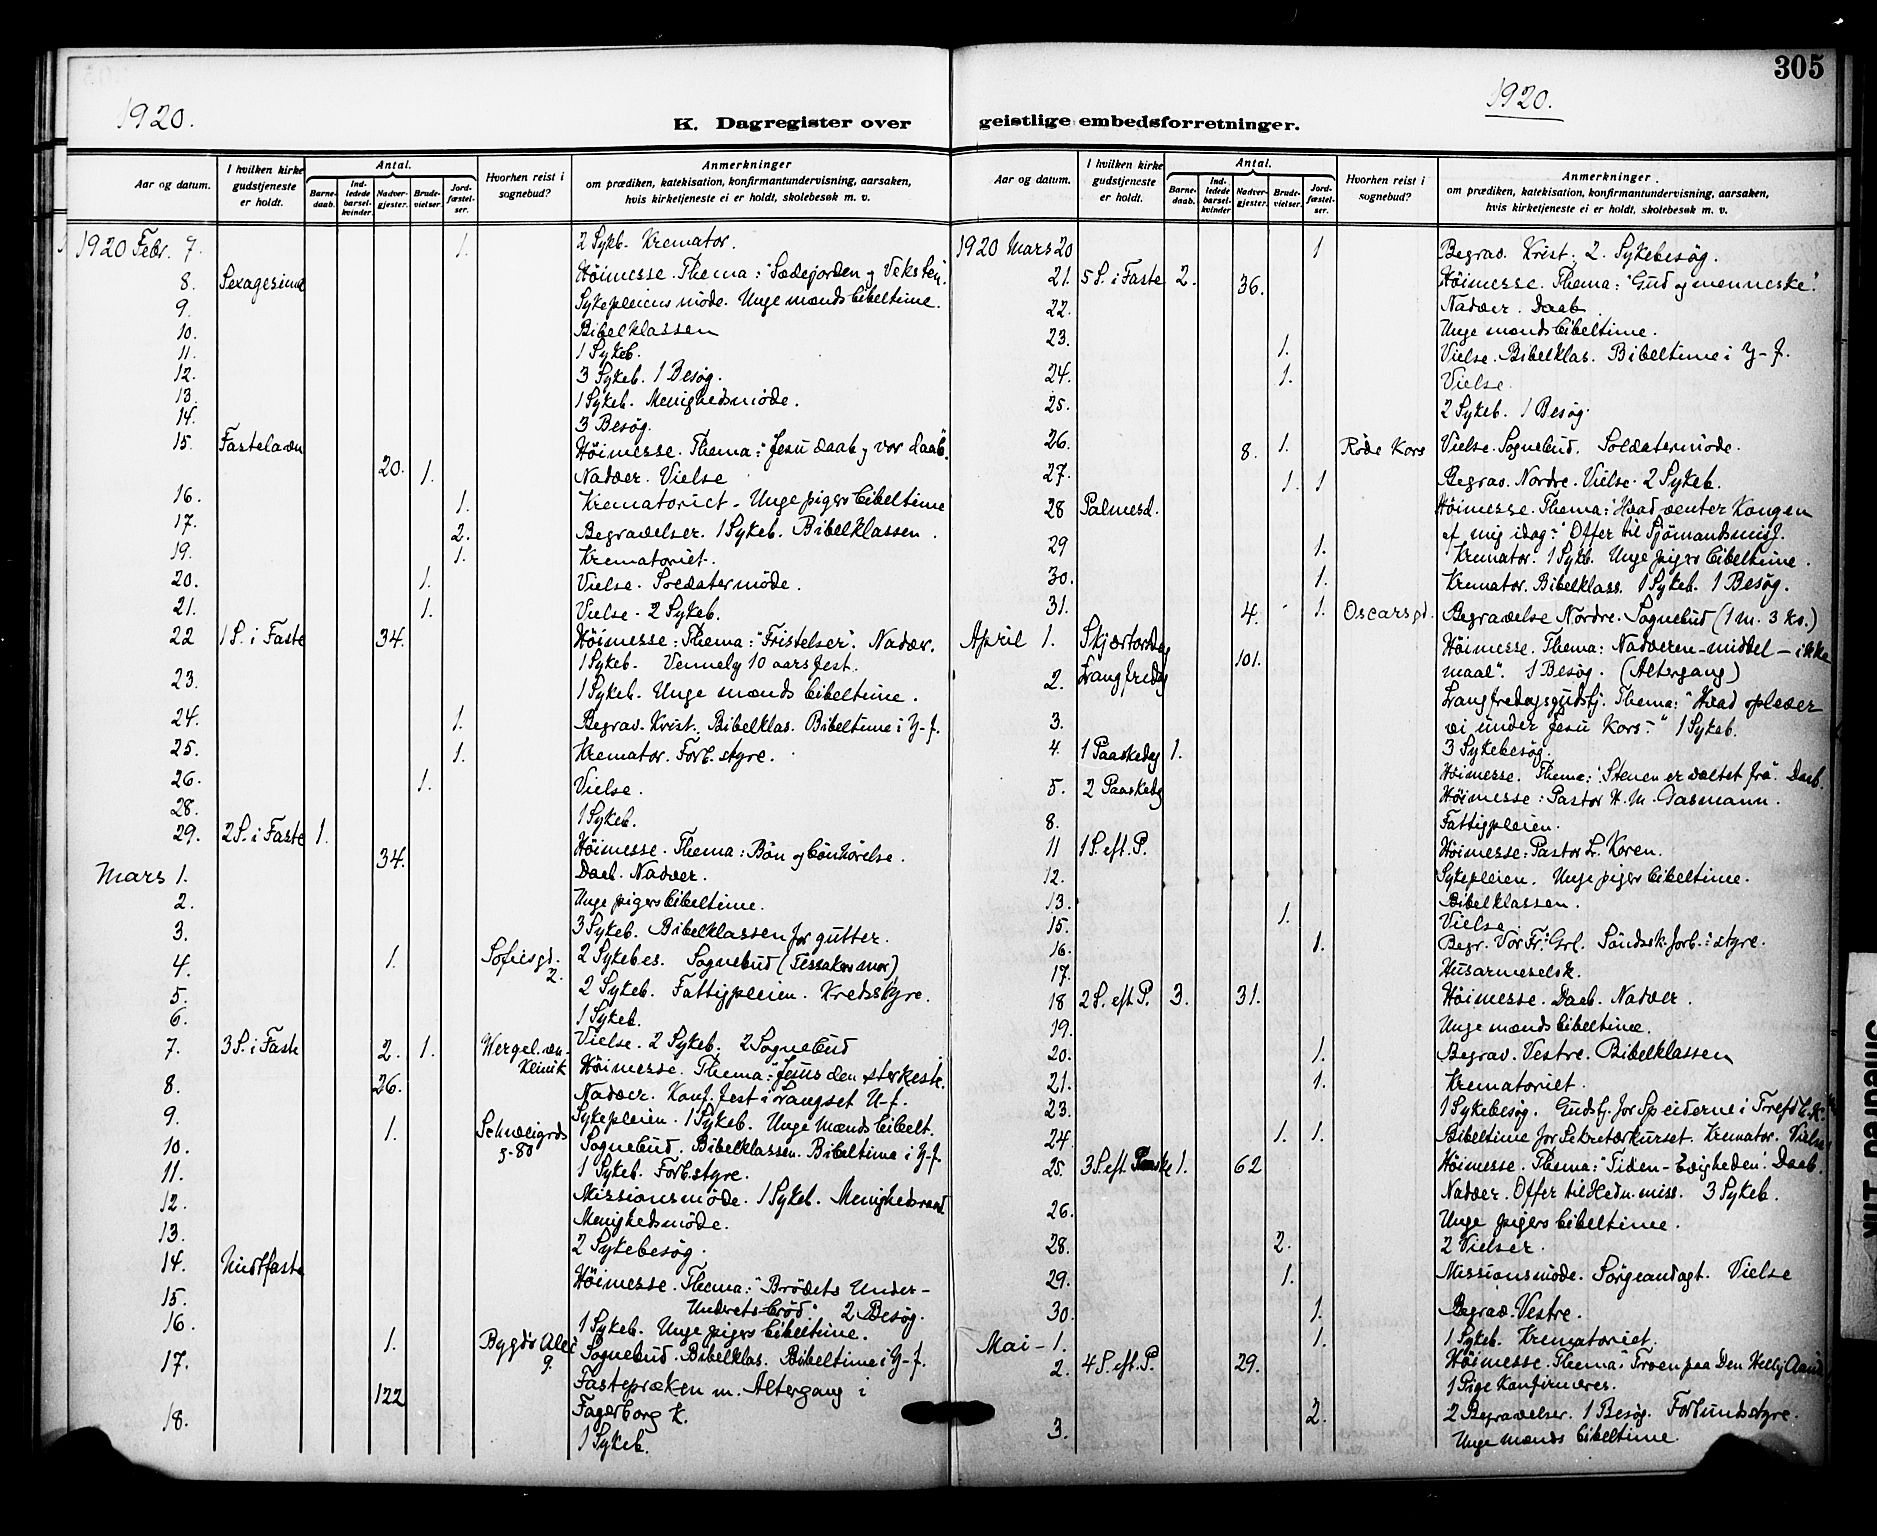 305
1920.
1920.
K. Dagregister over geistlige embedsforretninger.
Aar og datum. I hvilken kirke gudstjeneste er holdt. Antal. Barnedaab. Indledede barselkvinder. Nadvergjester. Brudevielser. Jordfæstelser. Hvorhen reist i sognebud? Anmerkninger om prædiken, katekisation, konfirmantundervisning, aarsaken, hvis kirketjeneste ei er holdt, skolebesøk m. v.
1920 Febr. 7. 1. 2 Sykb. Kremator.
8. Sexagesima Höimesse. Thema: "Sædejorden og Veksten".
9. Sykepleiens möde. Unge mænds bibeltime.
10. Bibelklassen
11. 1 Sykeb.
12. 3 Sykeb. 1 Besøg.
13. 1 Sykeb. Menighedsmöde.
14. 3 Besøg.
15. Fastelavn Höimesse. Thema: "Jesu daab og vor daab".
20. 1. Nadver. Vielse
16. 1. Krematoriet - Unge pigers bibeltime
17. 2. Begravelser. 1 Sykeb. Bibelklassen.
19. 1. Krematoriet.
20. 1. Vielse. Soldatermöde.
21. 1. Vielse - 2 Sykeb.
22 1 S. i Faste 34. Höimesse: Thema: "Fristelser". Nadver.
1 Sykeb. Vennely 10 aars fest.
23. 1 Sykeb. Unge mænds bibeltime.
24. 1. Begrav. Krist. Bibelklas. Bibeltime i Y-f.
25. 1. Kremator. Forb. styre.
26. 1. Vielse.
28. 1 Sykeb.
29. 2 S. i Faste 1. 34. Höimesse. Thema: Bön og bönhörelse.
Daab. Nadver.
Mars 1. Unge pigers bibeltime.
2. 3 Sykeb. Bibelklassen for gutter.
3. 1. Sofiesgd. 2. 2 Sykebes. Sognebud
4. 2 Sykeb. Fattigpleien. Kredsstyre.
5. 1 Sykeb.
6. 2. 1. Vielse. 2 Sykeb. 2 Sognebud
7. 3 S. i Faste Klinik Höimesse. Thema: "Jesus den sterkeste.
26. Nadver. Konf. fest i U-f.
8. Sykepleien. 1 Sykeb. Unge mænds bibelt.
9. 1. Schweigrds g. 80 Sognebud. Bibelklassen. Bibeltime i Y-f
10. 1 Sykeb. Forb. styre.
11. Missionsmöde. 1 Sykeb. Menighedsraad
12. Menighedsmöde.
13. 2 Sykebesøg.
14. Midtfaste Höimesse. Thema: "Brödets Under -
Underets bröd". 2 Besøg.
15. 1 Sykeb. Unge pigers bibeltime.
16. 1. Bygdö Alee 9. Sognebud. Bibelklas. Bibeltime i Y-f.
17. 122 Fastepræken m. Altergang i
Fagerborg K.
18. 1 Sykeb.
Aar og datum. I hvilken kirke gudstjeneste er holdt. Antal. Barnedaab. Indledede barselkvinder Nadvergjester. Brudevielser. Jordfæstelser. Hvorhen reist i sognebud? Anmerkninger. om prædiken, katekisation, konfirmantundervisning, aarsaken, hvis kirketjeneste ei er holdt, skolebesøk m. v.
1920 Mars 20 1 Begrav. Krist. 2. Sykebesøg.
21. 5 S. i Faste 2. 36. Höimesse. Thema: "Gud og menneske".
Nadver. Daab.
22. Unge mænds bibeltime.
23. 1. Vielse. Bibelklas. Bibeltime i Y-f.
24. 1. Vielse.
25. 2 Sykeb. 1 Besøg.
26. 8. 1. Röde Kors Vielse. Sognebud. Soldatermöde.
27. 1 1 Begrav. Nordre. Vielse. 2 Sykeb.
28 Palmesd. Höimesse. Thema: "Hvad venter Kongen
af mig idag?" Offer til Sjömandsmis.
29 1. Kremator. 1 Sykb. Unge pigers bibeltime.
30. 1. Kremator. Bibelklass. 1 Sykeb. 1 Besøg.
31. 4. 1. Oscarsgd. Begravelse Nordre. Sognebud (1 m. 3 kv.)
April 1. Skjærtorsdag 101. Höimesse. Thema: Nadveren - middel - ikke
maal". 1 Besøg. (Altergang)
2. Langfredag Langfredagsgudstj. Thema: "Hvad oplever
vi under Jesu Kors?" 1 Sykeb.
3. 3 Sykebesøg.
4. 1 Paaskedag 1. Höimesse. Thema: "Stenen er væltet fra". Daab.
5. 2 Paaskedg Höimesse: Pastor H. M. Gasmann.
8. Fattigpleien.
11 1 S. eft. P. Höimesse: Pastor L. Koren.
12. Sykepleien. Unge pigers bibeltime.
13. Bibelklassen.
15. 1. Vielse
16. 1. Begr. Vor Fr. Grl. Söndssk. forb. styre.
17.
18 2 S. eft. P. 3. 31. Höimesse. Daab. Nadver.
19. Unge mænds bibeltime.
20. 1. Begrav. Vestre. Bibelklassen
21. 1. Krematoriet.
23. 1 Sykebesøg. Gudstj. for Speiderne i Trefd. K.
24. 1. 1. Bibeltime for Sekretærkurset. Kremator. Vielse
25. 3 S. eft. Paaske 1. 62 Höimesse. Thema: "Tiden - Evigheden". Daab.
Nadver. Offer til Hedn. miss. 3 Sykeb.
26. Unge pigers bibeltime.
28. 2. 2 Vielser.
29. 1. Missionsmöde. Sörgeandagt. Vielse
30. 1. Begrav. Vestre.
Mai - 1. 1. 1 Sykeb. Krematoriet.
2. 4 S. eft. P. 29. Höimesse. Thema: "Troen paa Den Hellig Aand
1 Pige Konfirmeres.
3. 2. 2 Begravelser. 1 Besøg. Forbundsstyre.
Unge mænds bibeltime.